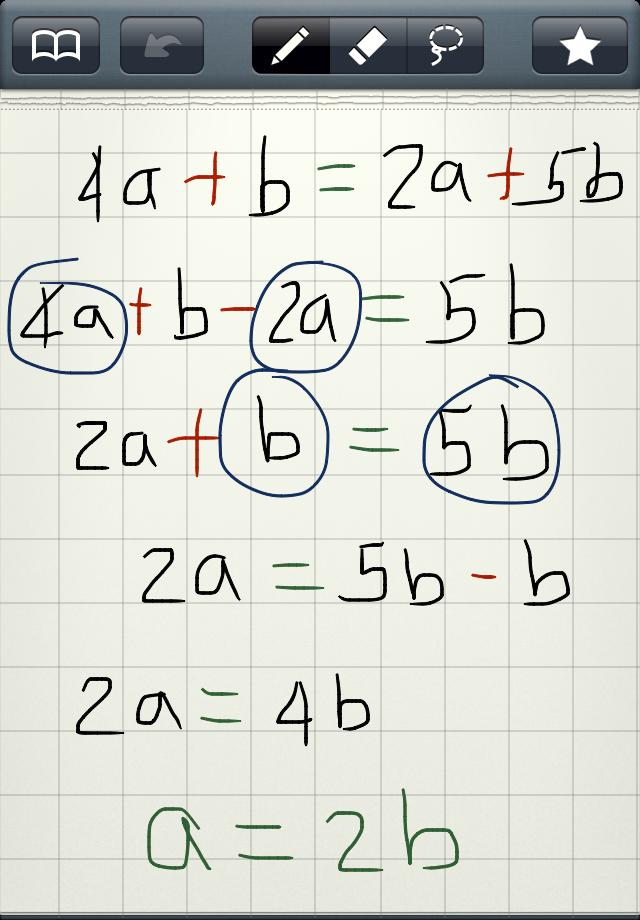 4a + b = 2a + 5b
4a + b - 2a = 5b
2a + b = 5b
2a = 5b - b
2a = 4b
a = 2b